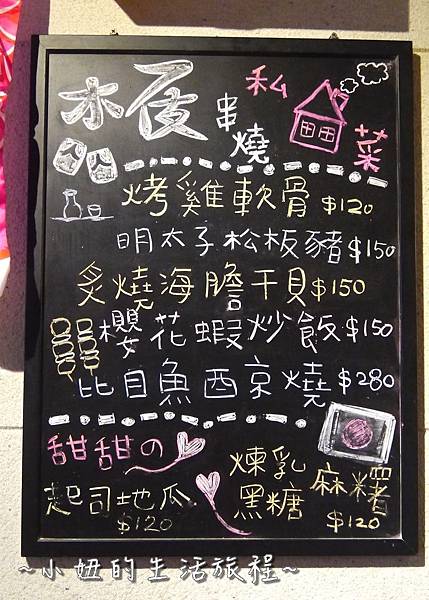 木屐串燒
私菜
烤雞軟骨 $120
明太子松板豬 $150
炙燒海膽干貝 $150
櫻花蝦炒飯 $150
比目魚西京燒 $280
甜甜の
起司地瓜 $120
煉乳黑糖麻糬 $120
~小妞的生活旅程~